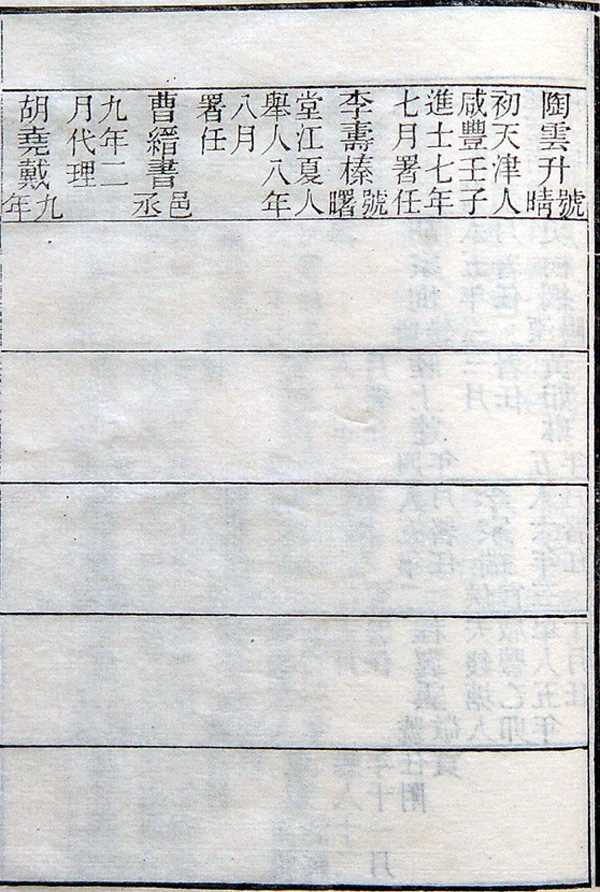 陶雲升號晴
初天津人
咸豐壬子
進士七年
七月署任
李壽榛號曙
堂江夏人
舉人八年
八月
署任
曹縉書邑丞
九年二
月代理
胡堯戴九年